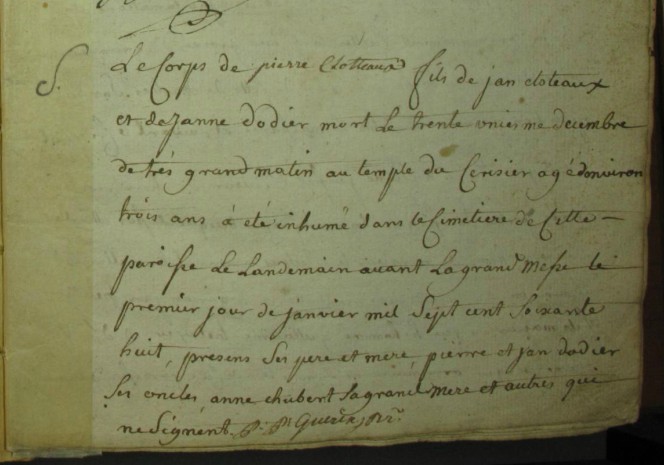 S.
Le Corps de pierre Cloteaux fils de jan cloteaux
et de Janne dodier mort le trente onies me decembre
de trés grand matin au temple du Cerisier agé d'environ
trois ans à été inhumé dans le Cimetiere de Cette
paroisse Le Landemain avant La grand Messe le
premier jour de janvier mil Sept cent Soixante
huit, presens Ses pere et mere, pierre et jan dodier
Ses oncles, anne chubert Sa grand Mere et autres qui
ne Signent.